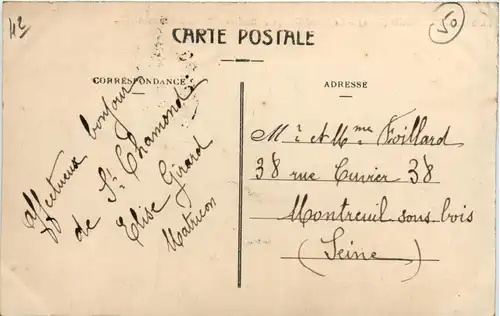 42
50
CARTE POSTALE
CORRESPONDANCE
ADRESSE
affectueux bonjour
de St Chamond
Elise Girard
Matricon
Mr et Mme Foillard
38 rue Cuvier 38
Montreuil sous bois
(Seine)